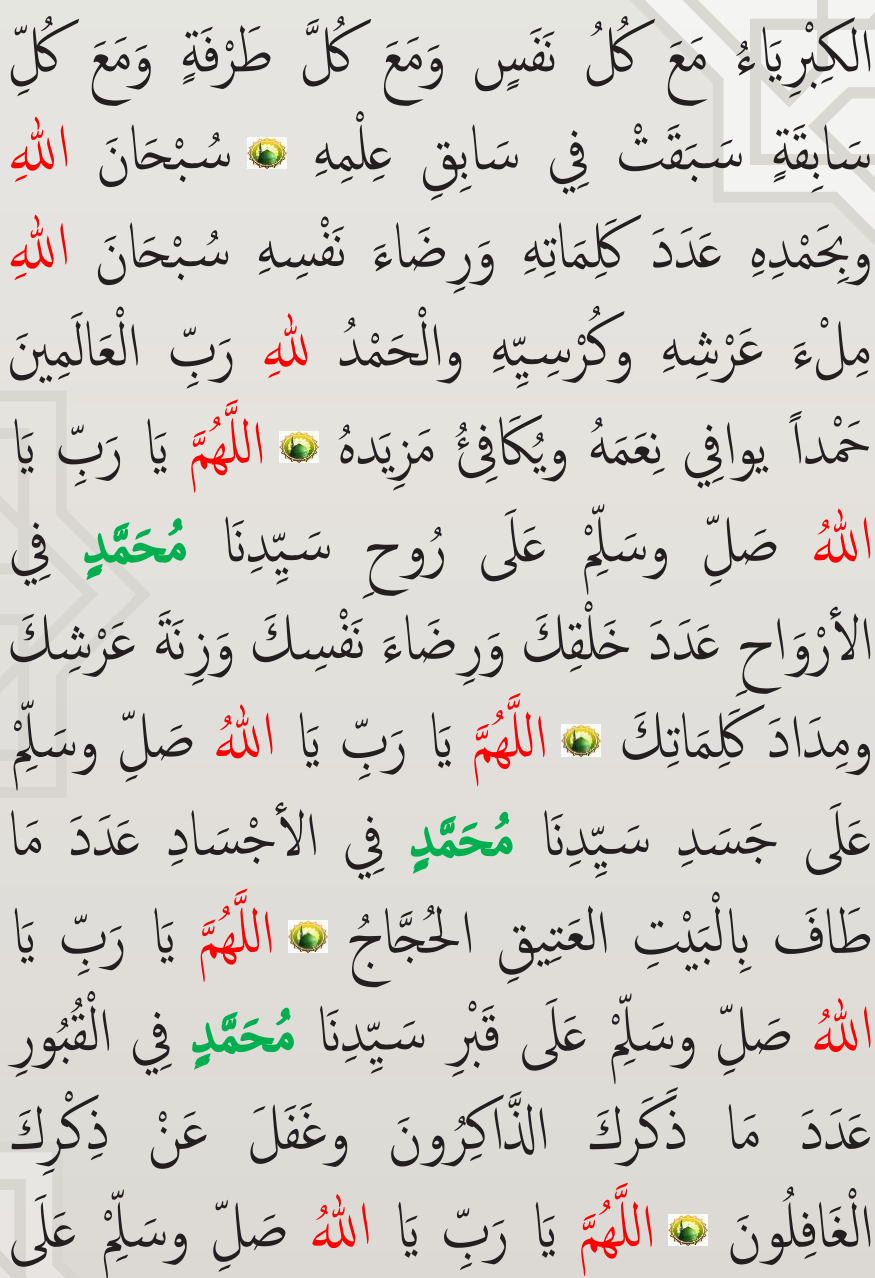 الكِبْرِيَاءُ مَعَ كُلُ نَفَسٍ وَمَعَ كُلَّ طَرْفَةٍ وَمَعَ كُلِّ
سَابِقَةٍ سَبَقَتْ فِي سَابِقِ عِلْمِهِ سُبْحَانَ اللهِ
وبِحَمْدِهِ عَدَدَ كَلِمَاتِهِ وَرِضَاءَ نَفْسِهِ سُبْحَانَ اللهِ
مِلْءَ عَرْشِهِ وكُرْسِيِّهِ والْحَمْدُ للهِ رَبِّ الْعَالَمِينَ
حَمْداً يوافِي نِعَمَهُ ويُكَافِئُ مَزِيَدهُ اللَّهُمَّ يَا رَبِّ يَا
اللهُ صَلِّ وسَلِّمْ عَلَى رُوحِ سَيِّدِنَا مُحَمَّدٍ فِي
الأرْوَاحِ عَدَدَ خَلْقِكَ وَرِضَاءَ نَفْسِكَ وَزِنَةَ عَرْشِكَ
ومِدَادَ كَلِمَاتِكَ اللَّهُمَّ يَا رَبِّ يَا اللهُ صَلِّ وسَلِّمْ
عَلَى جَسَدِ سَيِّدِنَا مُحَمَّدٍ فِي الأجْسَادِ عَدَدَ مَا
طَافَ بِالْبَيْتِ العَتِيقِ الحُجَّاجُ اللَّهُمَّ يَا رَبِّ يَا
اللهُ صَلِّ وسَلِّمْ عَلَى قَبْرِ سَيِّدِنَا مُحَمَّدٍ فِي الْقُبُورِ
عَدَدَ مَا ذَكَرَكَ الذَّاكِرُونَ وغَفَلَ عَنْ ذِكْرِكَ
الْغَافِلُونَ اللَّهُمَّ يَا رَبِّ يَا اللهُ صَلِّ وسَلِّمْ عَلَى